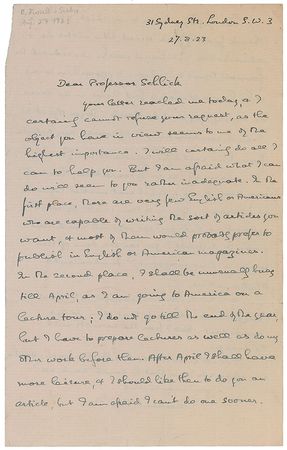 B. Russell
Aug. 27 1923
31 Sydney Str. London S.W. 3
27.8.23
Dear Professor Schlick
Your letter reached me today, & I
certainly cannot refuse your request, as the
object you have in view seems to me of the
highest importance. I will certainly do all I
can to help you. But I am afraid what I can
do will seem to you rather inadequate. In the
first place, there are very few English or Americans
who are capable of writing the sort of articles you
want, & most of them would probably prefer to
publish in English or American magazines.
In the second place, I shall be unusually busy
till April, as I am going to America on a
lecture tour; I do not go till the end of the year,
but I have to prepare lectures as well as doing
other work before then. After April I shall have
more leisure, & I should like then to do you an
article, but I am afraid I can't do one sooner.